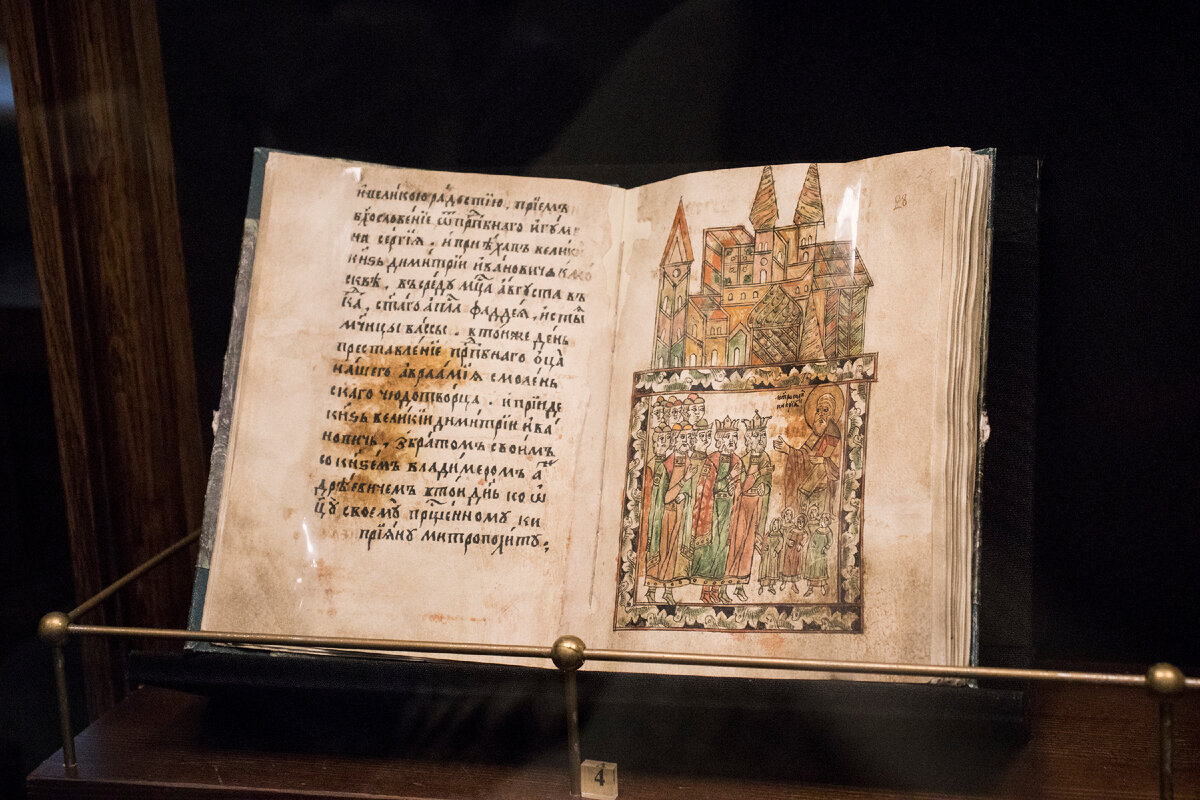 и великою радостию. прїемъ
бл҃гословенїе ѿ прпⷣбнаго игꙋме
на сергїѧ. и прїѣхавъ велики
кн҃зь димитрїи ивановичь
сквѣ. въ среⷣꙋ мцⷭа августа въ
к҃а. ст҃аго апⷭла фаддеѧ, и ст҃ыѧ
мч҃ицы вассы. в той же день
преставленїе прпⷣбнаго ѻц҃а
нашего авраамїѧ смолень
скаго чюдотворца. и прїиде
кн҃зь великїи димитрїи ива
новичь, з братомъ своимъ
со кн҃земъ владимеромъ аⷩ
дрѣевичемъ в той дн҃ь ко ѿ
ц҃ꙋ своемꙋ прⷭщенномꙋ ки
прїѧнꙋ митрополитꙋ.
28
4